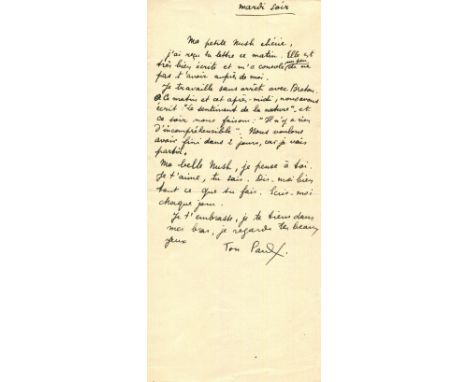 mardi soir
Ma petite Nush chérie,
j'ai reçu ta lettre ce matin. Elle est
très bien écrite et m'a consolé un peu de ne
pas t'avoir auprès de moi.
Je travaille sans arrêt avec Breton.
Ce matin et cet après-midi, nous avons
écrit "le sentiment de la nature", et
ce soir nous faisons : "Il n'y a rien
d'incompréhensible". Nous voulons
avoir fini dans 2 jours, car je vais
partir.
Ma belle Nush, je pense à toi.
Je t'aime, tu sais. Dis-moi bien
tout ce que tu fais. Ecris-moi
chaque jour.
Je t'embrasse, je te tiens dans
mes bras, je regarde tes beaux
yeux
Ton Paul.